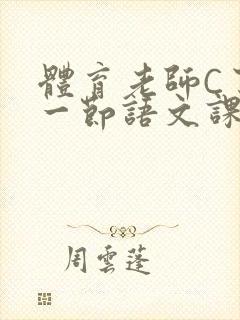 體育老師C
一節語文課
周雲蓬